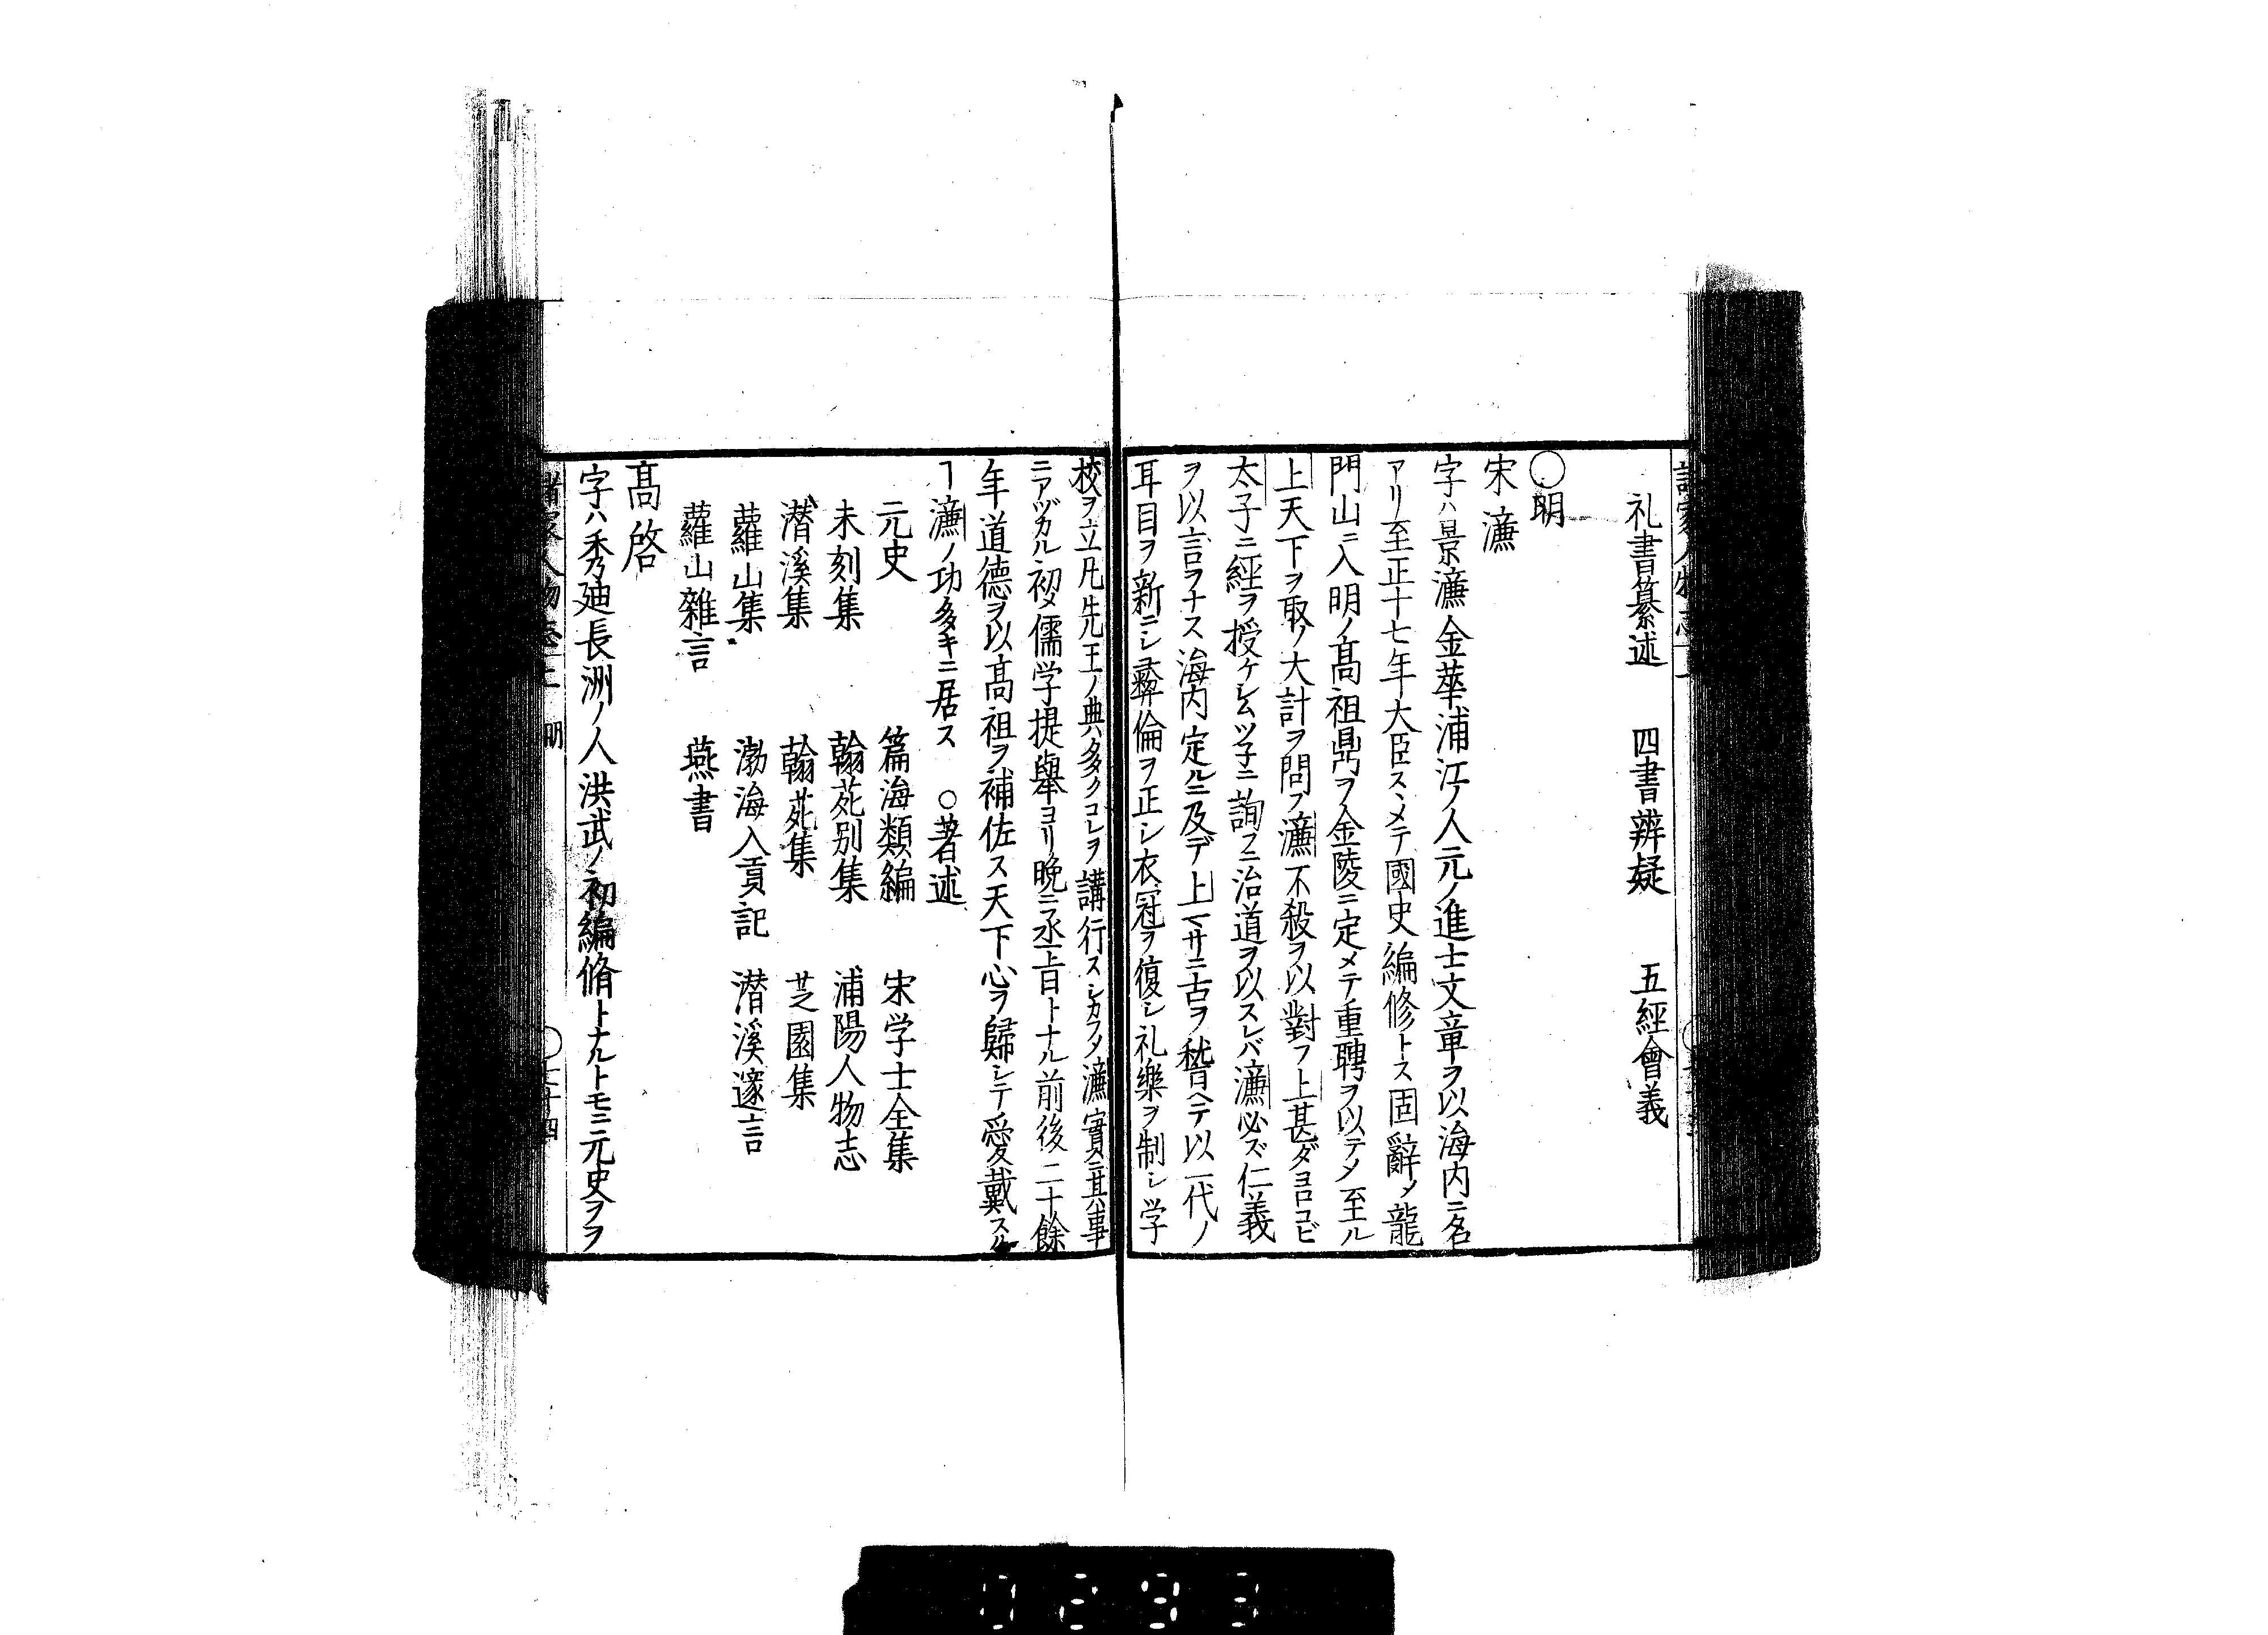 礼書纂述　四書辨疑　五經會義
○明
宋濂
字ハ景濂金華浦江ノ人元ノ進士文章ヲ以海内ニ名
アリ至正十七年大臣スヽメテ國史編修トス固辭メ龍
門山ニ入明ノ髙祖鼎ヲ金陵ニ定メテ重聘ヲ以テメ至ル
上天下ヲ取ノ大計ヲ問フ濂不殺ヲ以對フ上甚ダヨロコビ
太子ニ經ヲ授ケシムツ子ニ詢フニ治道ヲ以スレバ濂必ズ仁義
ヲ以言ヲナス海内定ルニ及デ上マサニ古ヲ稽ヘテ以一代ノ
耳目ヲ新ニシ彛倫ヲ正シ衣冠ヲ復シ礼樂ヲ制シ学
校ヲ立凡先王ノ典多クコレヲ講行スシカフメ濂實ニ其事
ニアヅカル初メ儒学提舉ヨリ晩ニ丞㫖トナル前後二十餘
年道德ヲ以髙祖ヲ補佐ス天下心ヲ歸シテ愛戴スル
ヿ濂ノ功多キニ居ス　○著述
元史　篇海類編　宋学士全集
未刻集　翰苑別集　浦陽人物志
潜溪集　翰苑集　芝園集
蘿山集　渤海入貢記　潜溪邃言
蘿山雜言　燕書
髙啓
字ハ季廸長洲ノ人洪武ノ初編脩トナルトモニ元史ヲヲ
諸家人物志上　明　○五十四